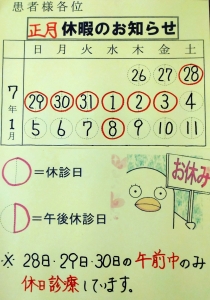 患者様各位
正月休暇のお知らせ
日 月 火 水 木 金 土
26 27 28
7年1月
29 30 31 1 2 3 4
5 6 7 8 9 10 11
=休診日
お休み
=午後休診日
※28日・29日・30日の午前中のみ
休日診療しています。